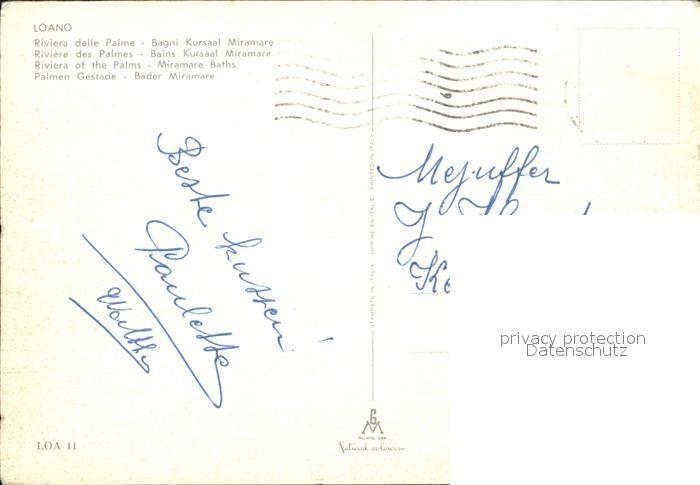 LOANO
Riviera delle Palme - Bagni Kursaal Miramare
Rivière des Palmes - Bains Kursaal Miramare
Riviera of the Palms - Miramare Baths
Palmen Gestade - Bäder Miramare
Beste kussen!
Paulette
STAMPATO IN ITALIA IMPRIMÉ EN ITALIE PRINTED IN ITALY
Mejuffer
privacy protection
Datenschutz
LOA 11
Natural colours